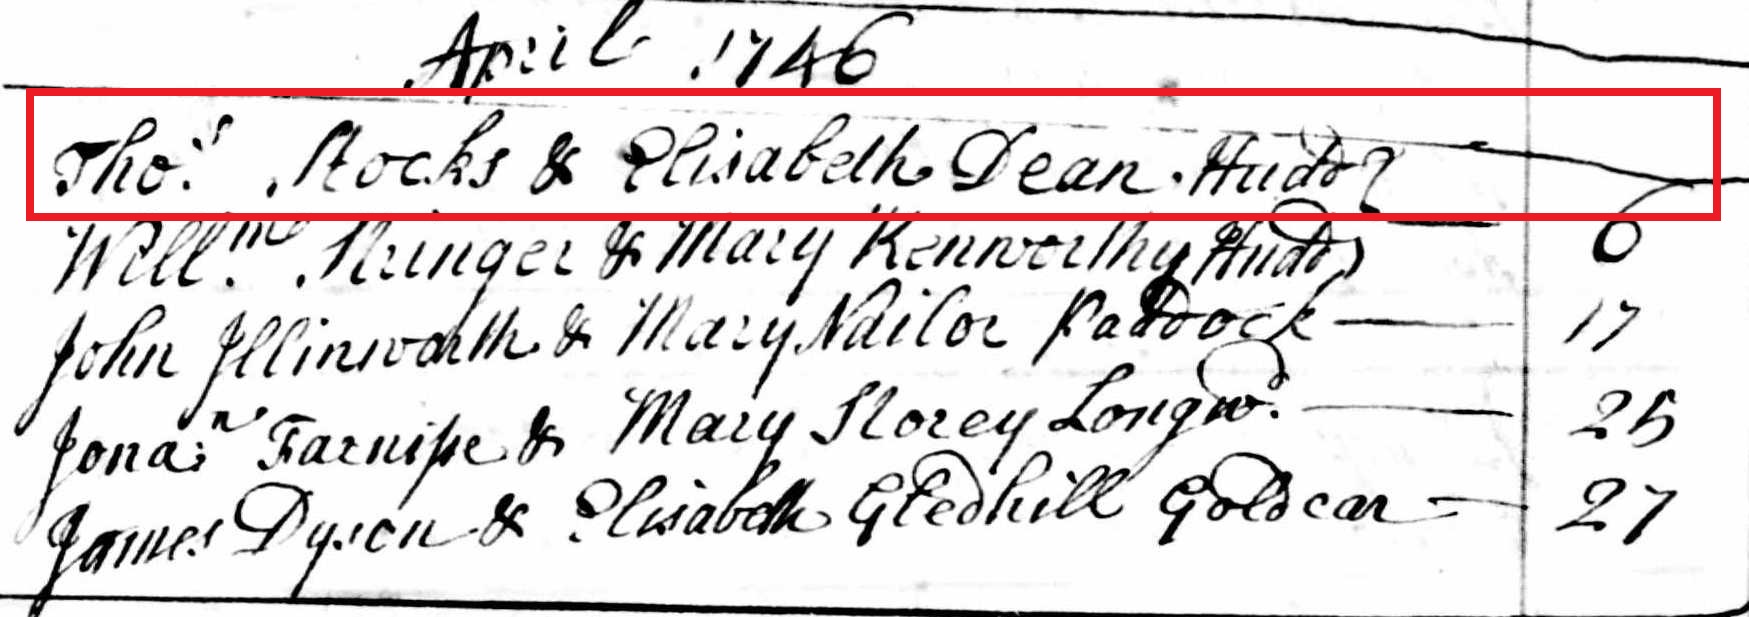 April 1746
Tho:s Stocks & Elisabeth Dean Hudd
Will:m Stringer & Mary Kenworthy Hudd 6
John Illinworth & Mary Nailor Paddock 17
Jona:n Farnise & Mary Storey Longw: 25
James Dyson & Elisabeth Gledhill Goldcar 27